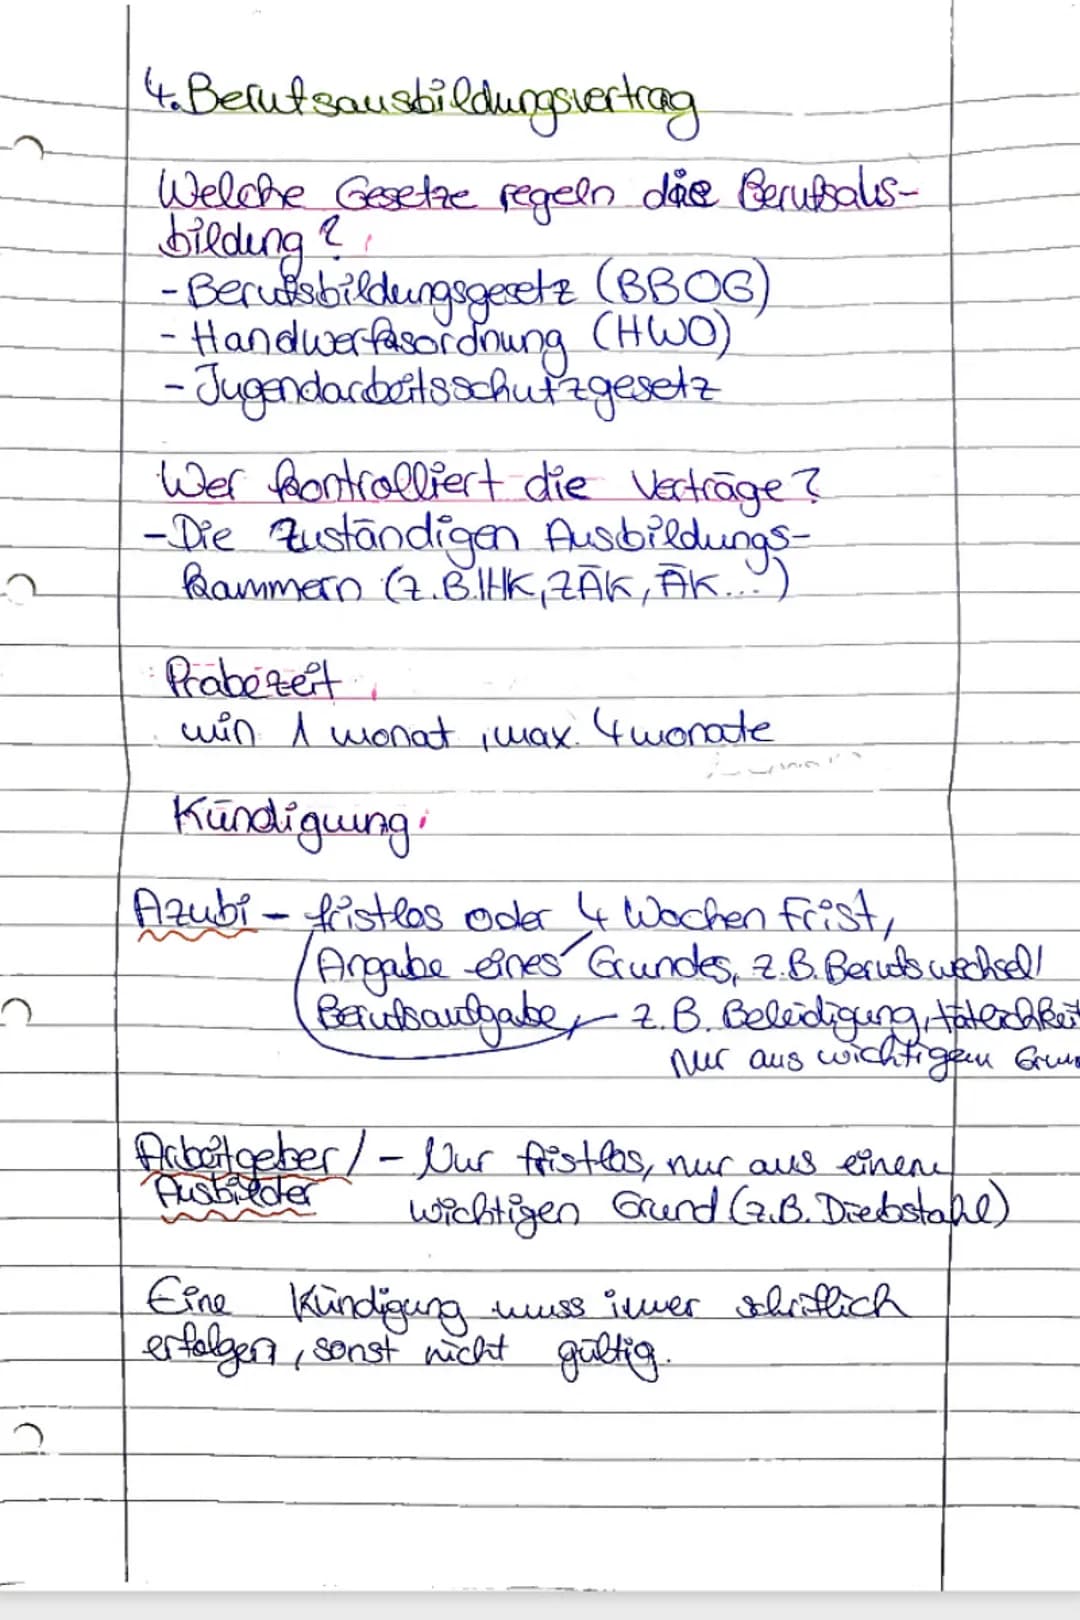 4. Berufsausbildungsvertrag
Welche Gesetze regeln die Berufsaus-
bildung?
- Berufsbildungsgesetz (BBOG)
- Handwerksordnung (HWO)
- Jugendarbeitsschutzgesetz
Wer kontrolliert die Verträge?
- Die Zuständigen Ausbildungs-
kammern (z.B. IHK, ZÄK, ÄK...)
Probezeit
min 1 monat, max. 4 monate
Kündigung
Azubi - fristlos oder 4 Wochen Frist,
Angabe eines Grundes, z.B. Berufswechsel/
Berufsaufgabe, z.B. Beleidigung, tätlichkeit
nur aus wichtigem
Arbeitgeber/ - Nur fristlos, nur aus einem
Ausbilder wichtigen Grund (z.B. Diebstahl)
Eine Kündigung muss immer schriftlich
erfolgen, sonst nicht gültig.